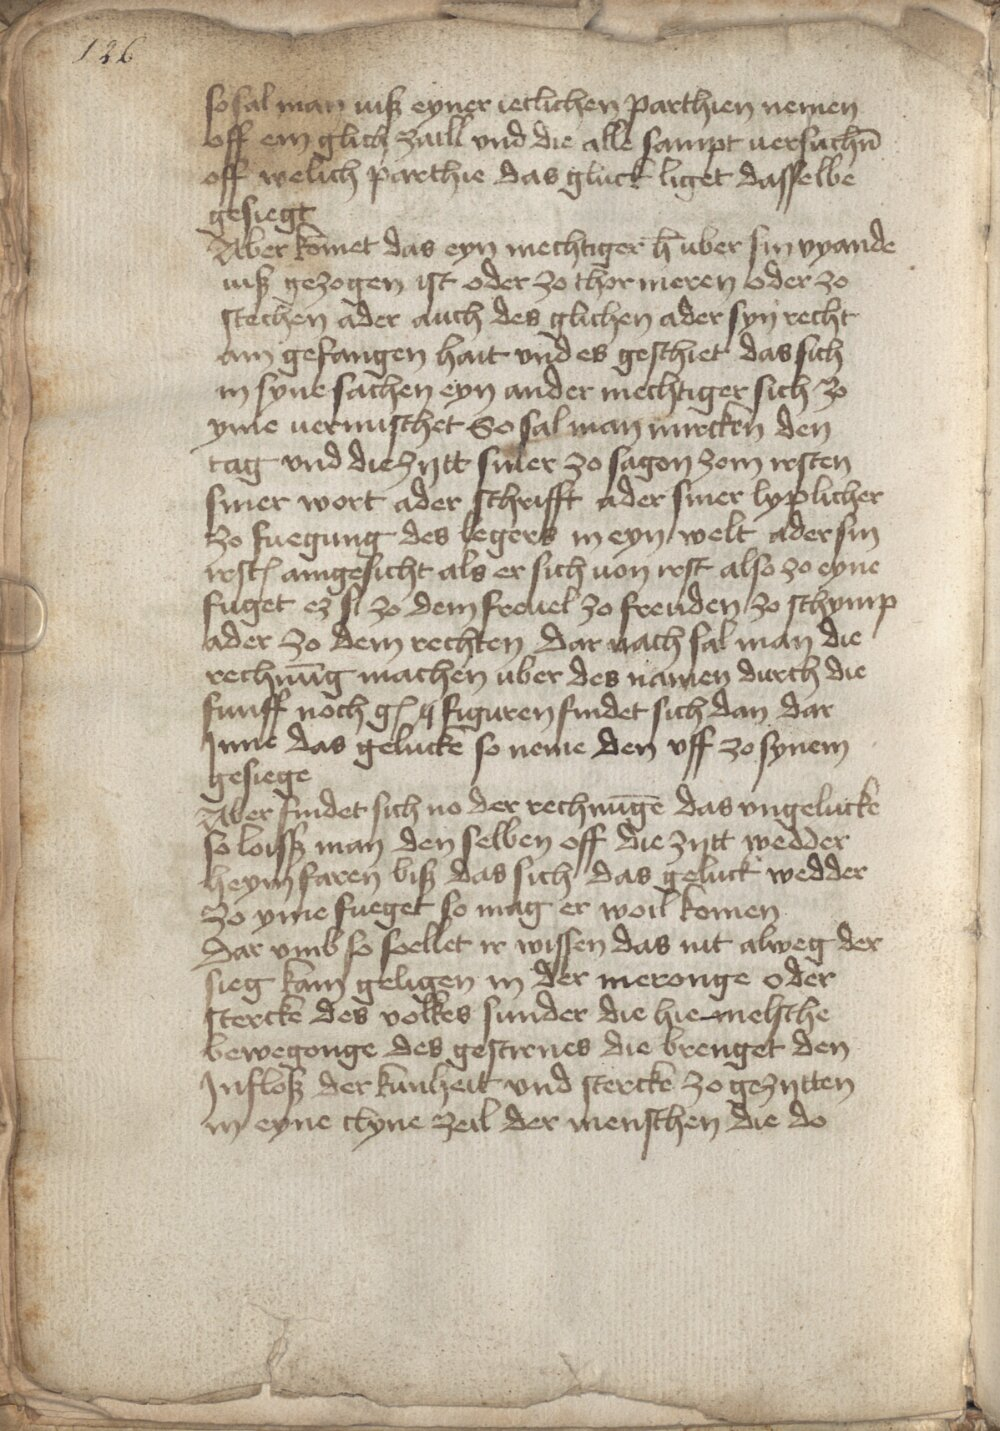 126
so sal man uiß eyner ietlichen parthien nemen
off ein glich zaill vnd die alle sampt uersuchn̄
off welich parthie das gluck liget dasselbe
gesiegt
Aber kom̄et das eyn mechtiger h̄ uber sin vyande
uiß gezogen ist oder zo thormeren oder zo
stechen ader auch des glichen ader syn recht
an gefangen hait vnd es geschiet das sich
in syne sachen eyn ander mechtiger sich zo
yme uermischet So sal man mircken den
tag vnd die zytt siner zo sagon zom irsten
siner wort ader schrifft ader siner lyplicher
zo fuegung des legers in eyn welt ader sin
angesicht als er sich uon irst also zo eyne
fuget ez si zo dem freuel zo freuden zo schymp
ader zo dem rechten Dar nach sal man die
rechnūg machen uber des namen durch die
funff noch figuren findet sich dan dar
Inne das gelucke so neme den vff zo synem
gesiege
Aber findet sich no der rechnūge das vngelucke
so loiß man den selben off die zytt wedder
heym faren biß das sich das geluck wedder
zo yme fueget so mag er woil komen
Dar vmb so soellet ir wissen das nit alweg der
sieg kan geligen in der meronge oder
stercke des volkes sunder die hiemelsche
bewegonge des gestirnes die brenget den
Infloß der kunheit vnd stercke zo gezytten
in eyne clyne zeil der menschen die do